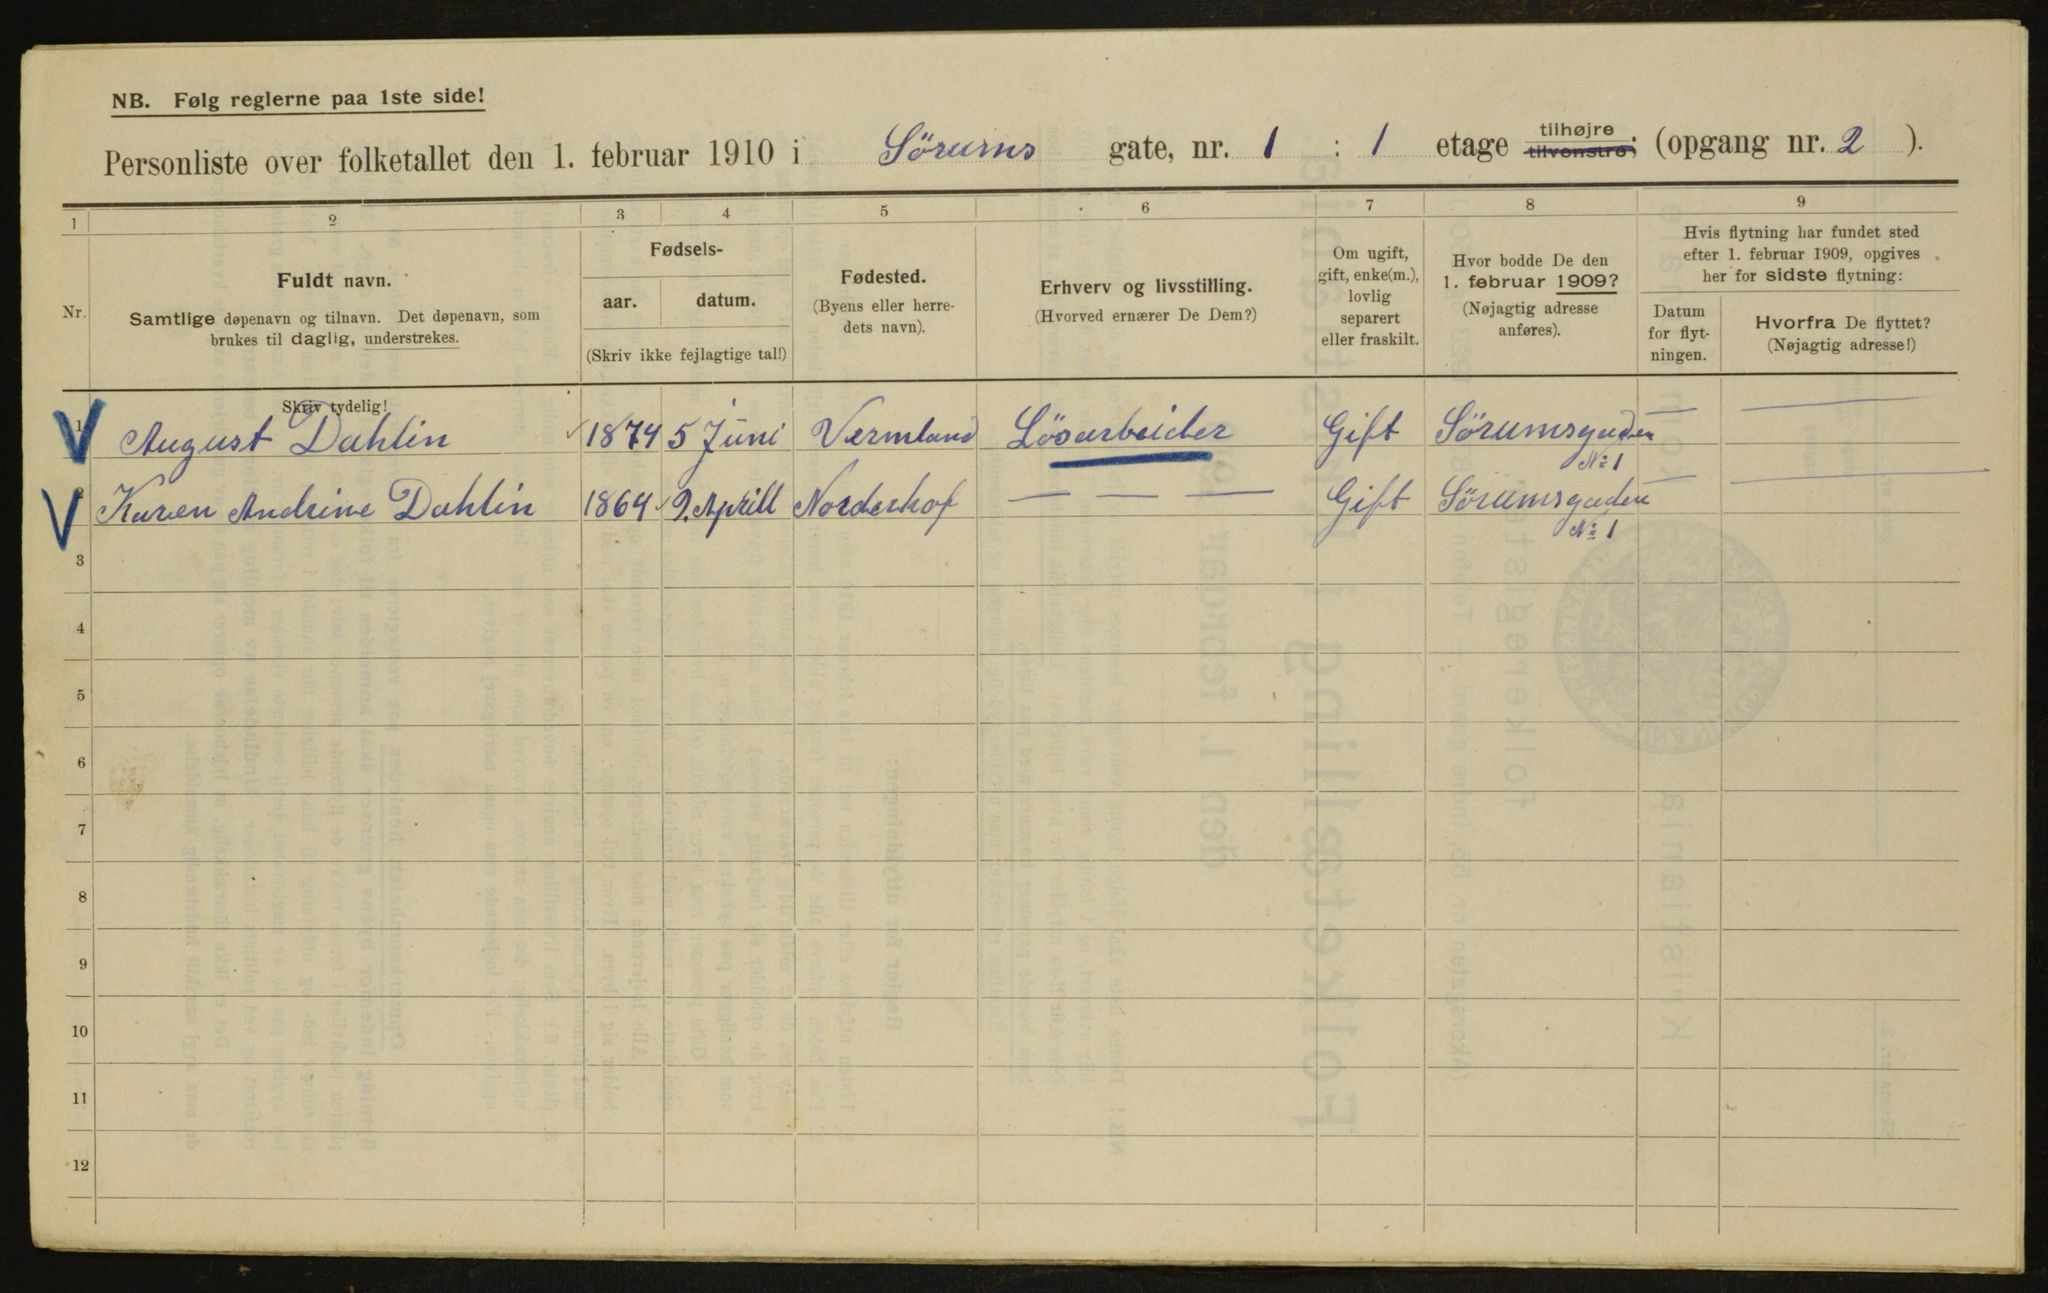 NB. Følg reglerne paa 1ste side!
Personliste over folketallet den 1. februar 1910 i Sörums gate, nr. 1 : 1 etage tilhøjre tilvenstre; (opgang nr. 2 ).
1 2 3 4 5 6 7 8 9
Nr.
Fuldt navn.
Samtlige døpenavn og tilnavn. Det døpenavn, som
brukes til daglig, understrekes.
Skriv tydelig!
Fødsels-
aar. datum.
(Skriv ikke fejlagtige tal!)
Fødested.
(Byens eller herre-
dets navn).
Erhverv og livsstilling.
(Hvorved ernærer De Dem?)
Om ugift,
gift, enke(m.),
lovlig
separert
eller fraskilt.
Hvor bodde De den
1. februar 1909?
(Nøjagtig adresse
anføres).
Hvis flytning har fundet sted
efter 1. februar 1909, opgives
her for sidste flytning:
Datum
for flyt-
ningen.
Hvorfra De flyttet?
(Nøjagtig adresse!)
1 August Dahlin 1874 5 Juni Vermland Lösarbeider Gift Sörumsgaden — —
No 1
2 Karen Andrine Dahlin 1864 9. Aprill Norderhof — — — Gift Sörumsgaden — —
No 1
3
4
5
6
7
8
9
10
11
12